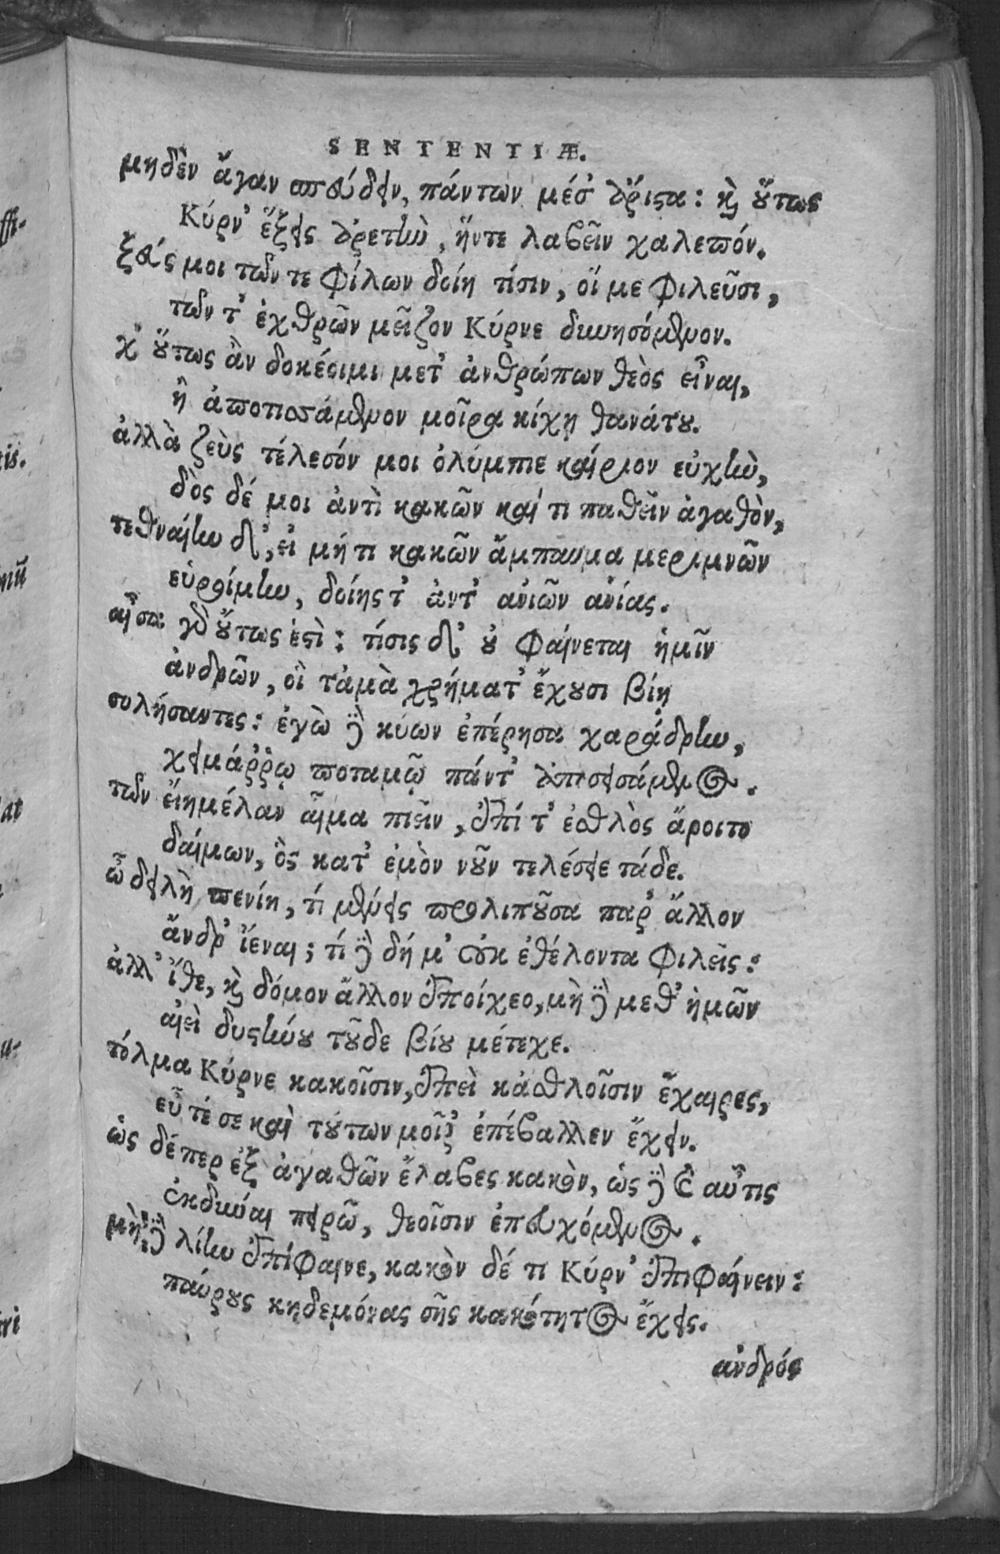 SENTENTIÆ.
μηδὲν ἄγαν σπεύδειν, πάντων μέσ' ἄριστα: καὶ οὕτως
Κύρν' ἕξεις ἀρετὴν, ἥντε λαβεῖν χαλεπόν.
Ζεύς μοι τῶν τε φίλων δοίη τίσιν, οἵ με φιλεῦσι,
τῶν τ' ἐχθρῶν μεῖζον Κύρνε δυνησόμενον.
χ' οὕτως ἂν δοκέοιμι μετ' ἀνθρώπων θεὸς εἶναι,
ἢ ἀποτισάμενον μοῖρα κίχῃ θανάτου.
ἀλλὰ ζεὺς τέλεσόν μοι ὀλύμπιε καίριον εὐχὴν,
δὸς δέ μοι ἀντὶ κακῶν καί τι παθεῖν ἀγαθὸν,
τεθναίην δ', εἰ μή τι κακῶν ἄμπαυμα μεριμνῶν
εὑροίμην, δοίης τ' ἀντ' ἀνιῶν ἀνίας.
αἶσα γὰρ οὕτως ἐστὶ: τίσις δ' οὐ φαίνεται ἡμῖν
ἀνδρῶν, οἳ τἀμὰ χρήματ' ἔχουσι βίῃ
συλήσαντες: ἐγὼ δὲ κύων ἐπέρησα χαράδρην,
χειμάῤῥῳ ποταμῷ πάντ' ἀποσεισάμενος.
τῶν εἴη μέλαν αἷμα πιεῖν, ἐπί τ' ἐσθλὸς ἄροιτο
δαίμων, ὃς κατ' ἐμὸν νοῦν τελέσειε τάδε.
ὦ δειλὴ πενίη, τί μένεις προλιποῦσα παρ' ἄλλον
ἄνδρ' ἰέναι; τί δὲ δή μ' οὐκ ἐθέλοντα φιλεῖς:
ἀλλ' ἴθι, καὶ δόμον ἄλλον ἐποίχεο, μὴ δὲ μεθ' ἡμῶν
αἰεὶ δυστήνου τοῦδε βίου μέτεχε.
τόλμα Κύρνε κακοῖσιν, ἐπεὶ κἀσθλοῖσιν ἔχαιρες,
εὖτέ σε καὶ τούτων μοῖρ' ἐπέβαλλεν ἔχειν.
ὡς δέπερ ἐξ ἀγαθῶν ἔλαβες κακὸν, ὡς δὲ καὶ αὖτις
ἐκδῦναι πειρῶ, θεοῖσιν ἐπευχόμενος.
μὴ δὲ λίην ἐπίφαινε, κακὸν δέ τι Κύρν' ἐπιφαίνειν:
παύρους κηδεμόνας σῆς κακότητος ἔχεις.
ἀνδρός